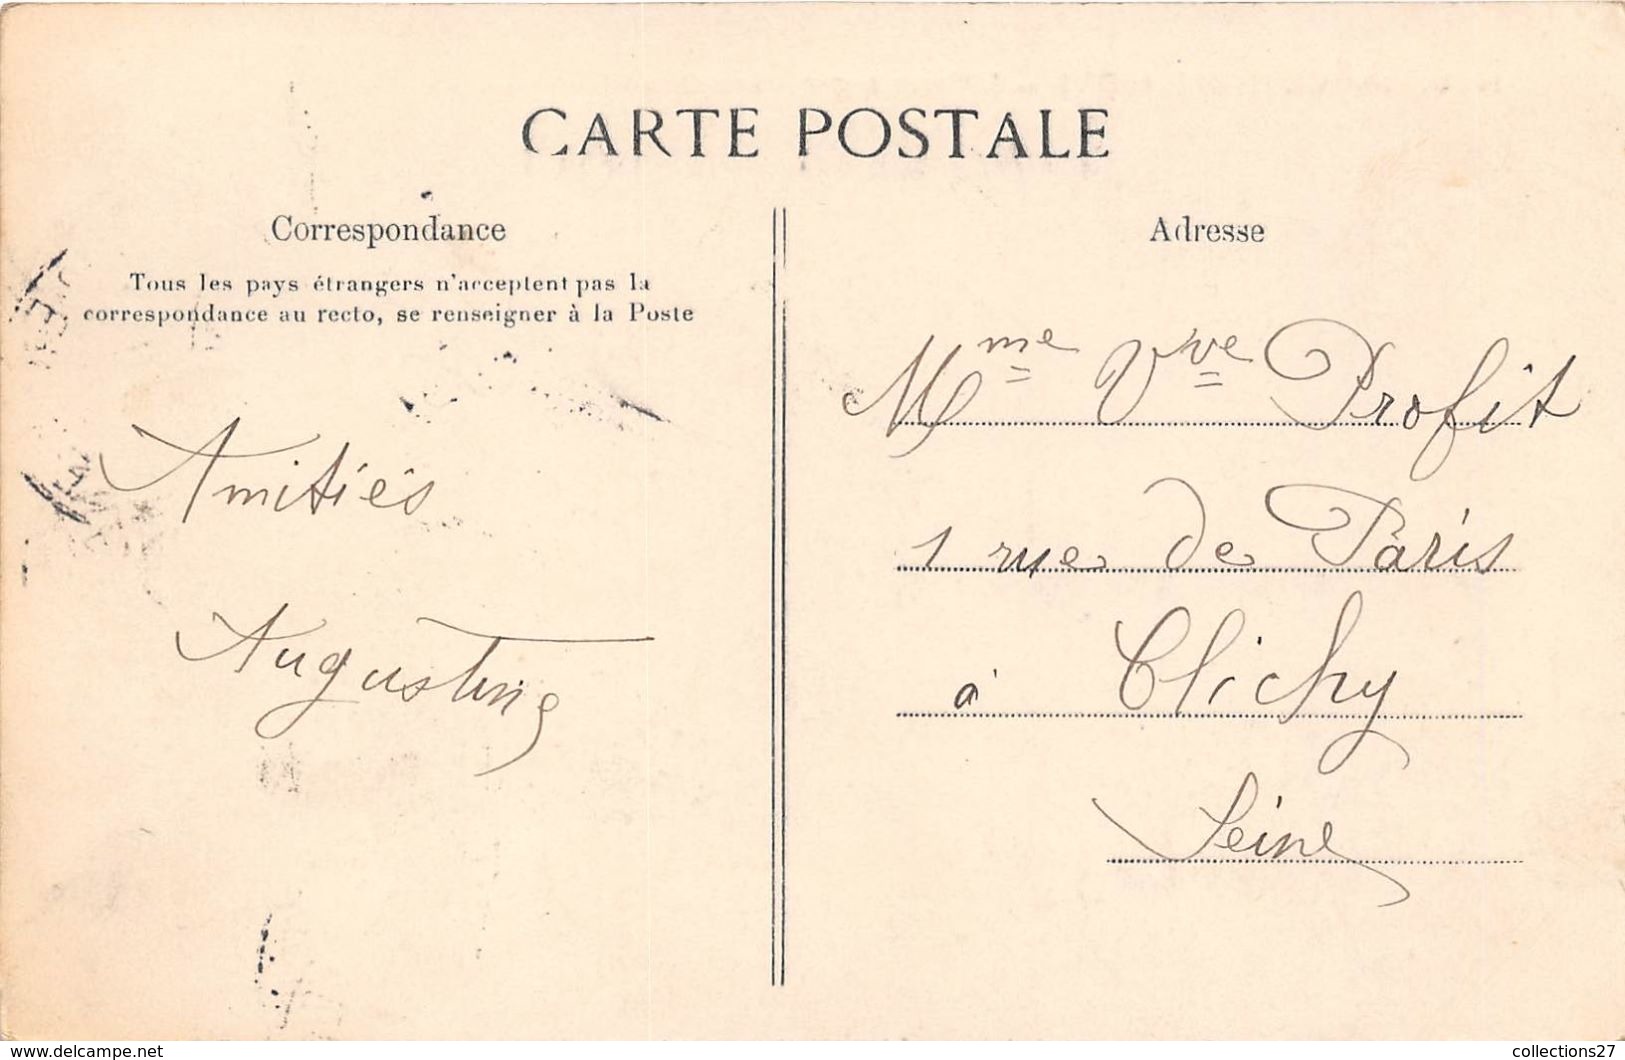 CARTE POSTALE
Correspondance
Tous les pays étrangers n'acceptent pas la
correspondance au recto, se renseigner à la Poste
Amitiés
Augustine
Adresse
Mme Vve Profit
1 rue de Paris
à Clichy
Seine
www.delcampe.net
collections27